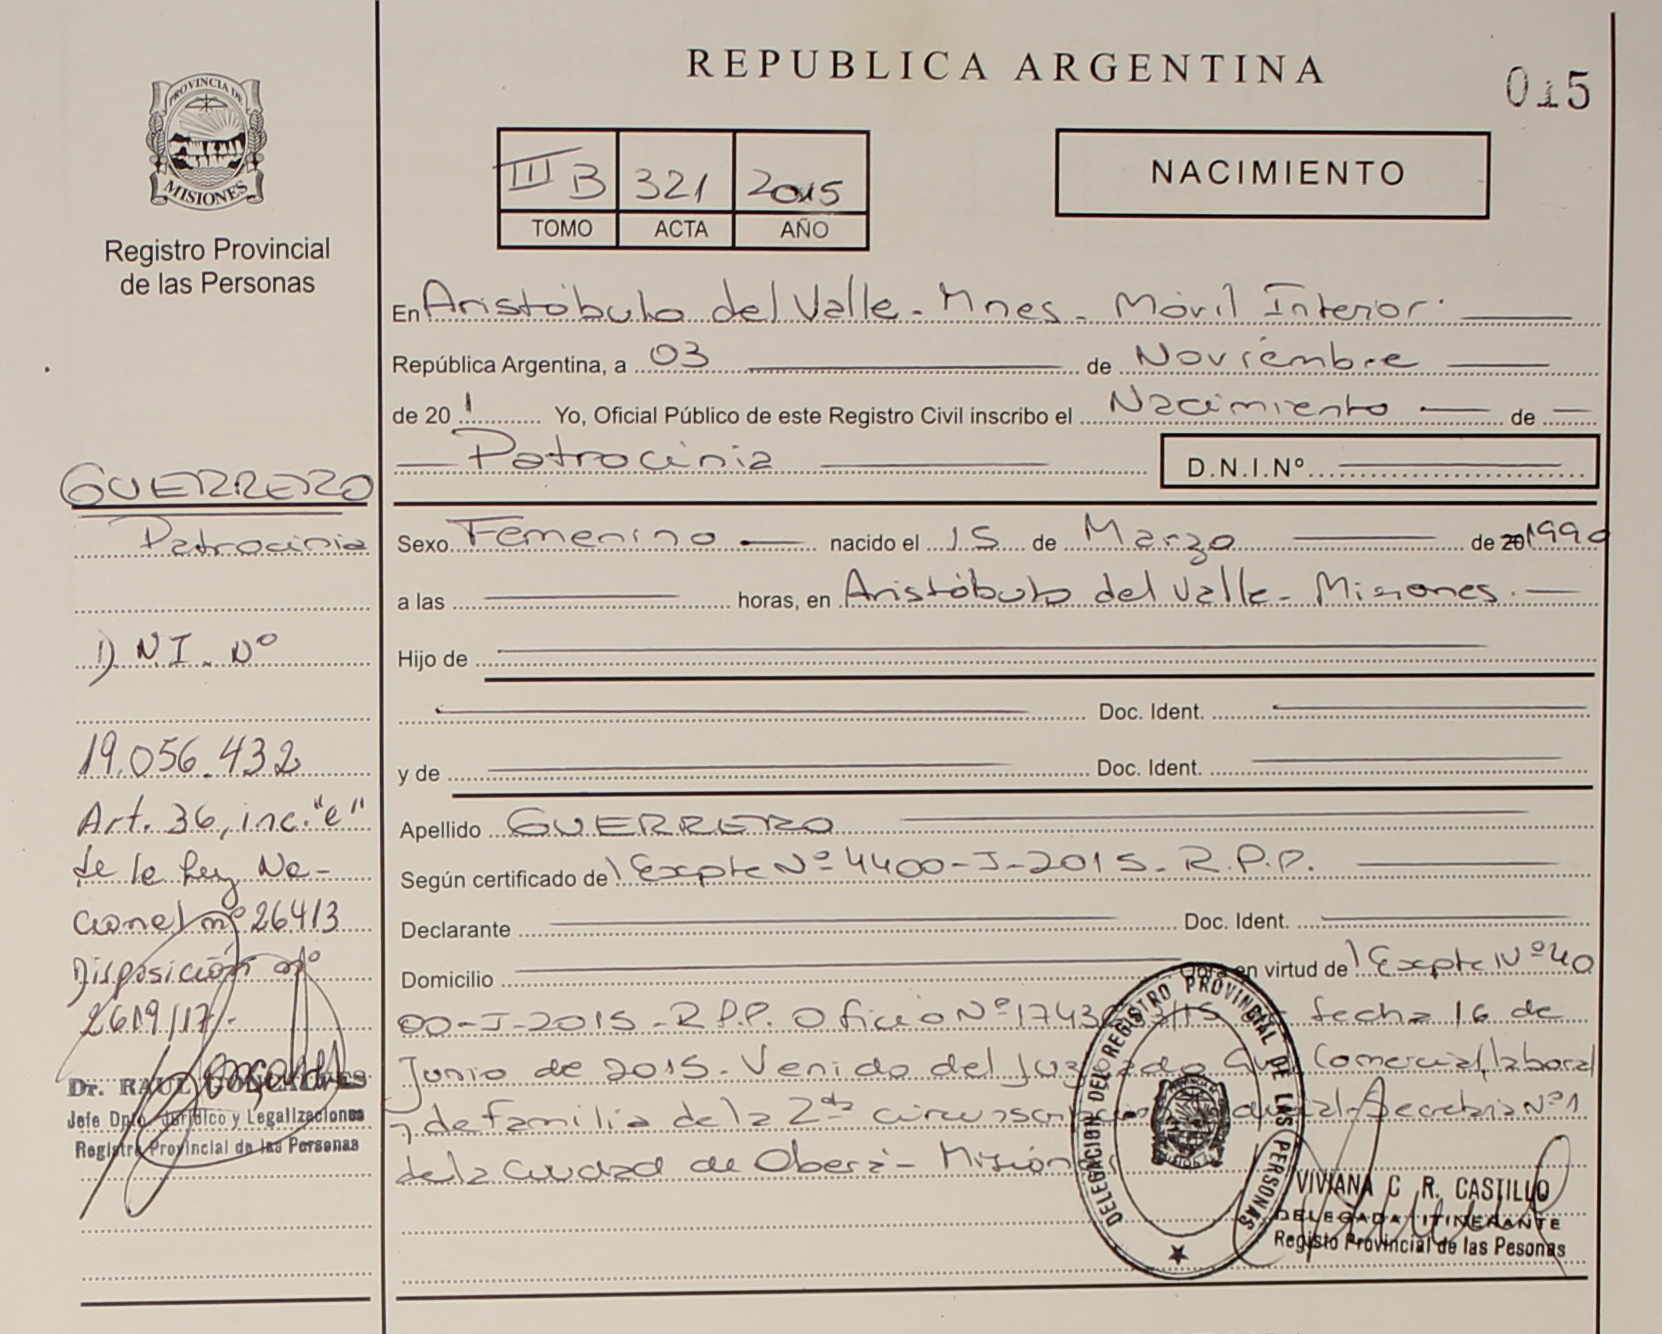 REPUBLICA ARGENTINA
015
PROVINCIA DE
MISIONES
Registro Provincial
de las Personas
III B 321 2015
TOMO ACTA AÑO
NACIMIENTO
En Aristóbulo del Valle - Mnes - Móvil Interior
República Argentina, a 03 de Noviembre
de 20 1 Yo, Oficial Público de este Registro Civil inscribo el Nacimiento de
Patrocinia D.N.I.Nº
Sexo Femenino nacido el 15 de Marzo de 20 1990
a las horas, en Aristóbulo del Valle - Misiones.
Hijo de
Doc. Ident.
y de Doc. Ident.
Apellido GUERRERO
Según certificado de Expte Nº 4400-I-2015-R.P.P.
Declarante Doc. Ident.
Domicilio en virtud de Expte Nº 40
00-I-2015-R.P.P. Oficio Nº fecha 16 de
Junio de 2015. Venido del Juzgado Comercial, laboral
y de familia de la 2da Secretria Nº1
de la ciudad de Oberá - Misiones
GUERRERO
Patrocinia
DNI. Nº
19.056.432
Art. 36, inc. "e"
de le Ley Na-
cionel nº 26413
Disposición nº
2619/17.
Dr. RAUL
Jefe Dpto. Jurídico y Legalizaciones
Registro Provincial de las Personas
DELEGACION DEL REGISTRO PROVINCIAL DE LAS PERSONAS
VIVIANA C R. CASTILLO
DELEGADA ITINERANTE
Registo Provincial de las Pesonas